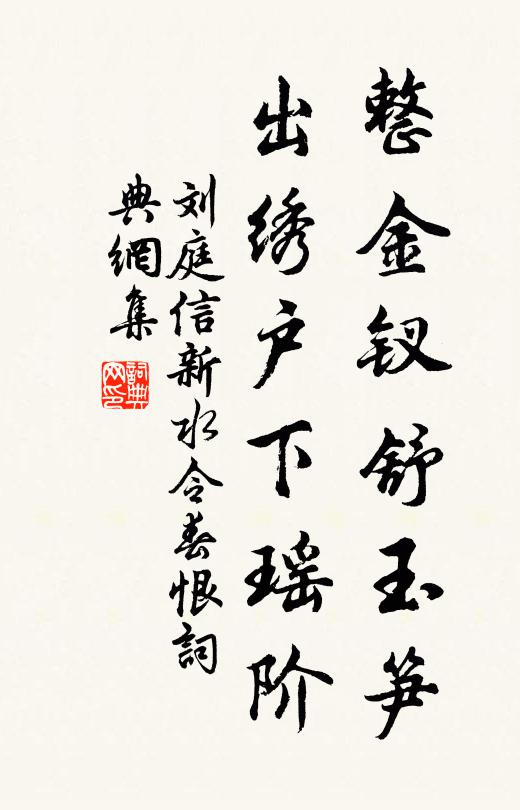 整金钗舒玉笋
出绣户下瑶阶
刘庭信新水令春恨词
典網集
詞典网印